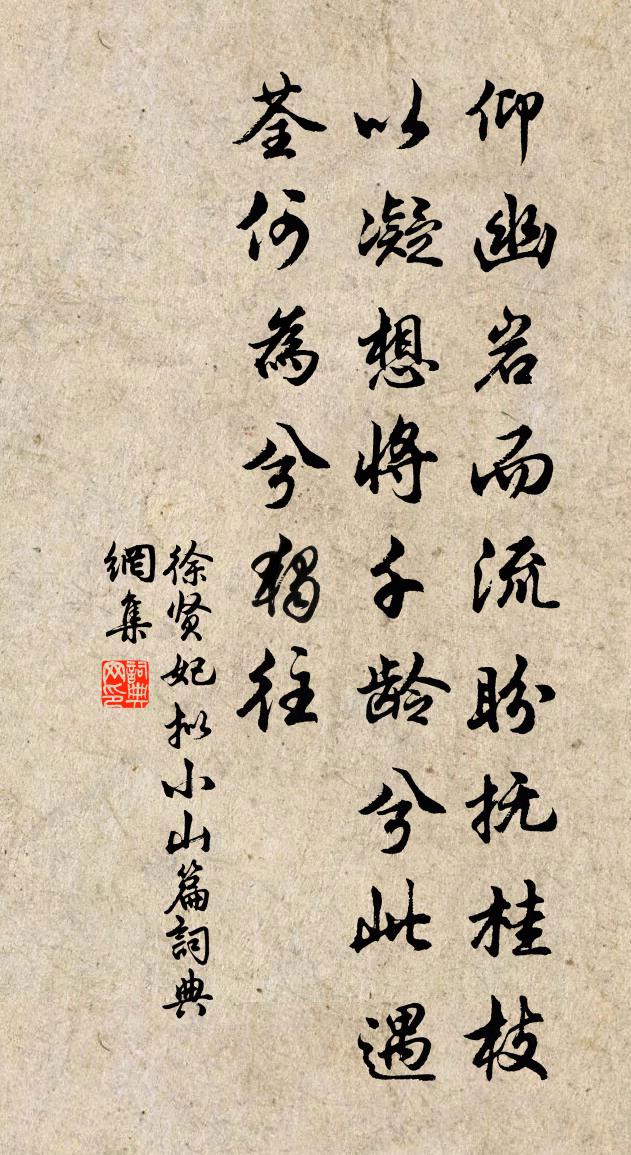 仰幽岩而流盼抚桂枝
以凝想将千龄兮此遇
荃何為兮独往
徐贤妃拟小山篇詞典
網集
詞典网印